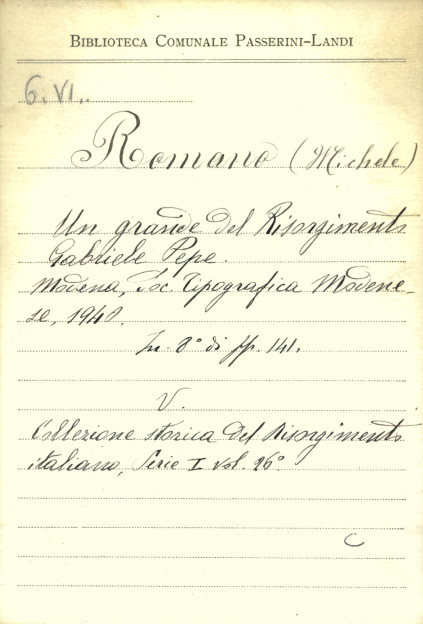 BIBLIOTECA COMUNALE PASSERINI-LANDI
6. VI..
Romano (Michele)
Un grande del Risorgimento
Gabriele Pepe.
Modena, Soc. Tipografica Modene-
se, 1940.
In 8° di pp. 141.
V.
Collezione storica del Risorgimento
italiano, Serie I vol. 26°
C